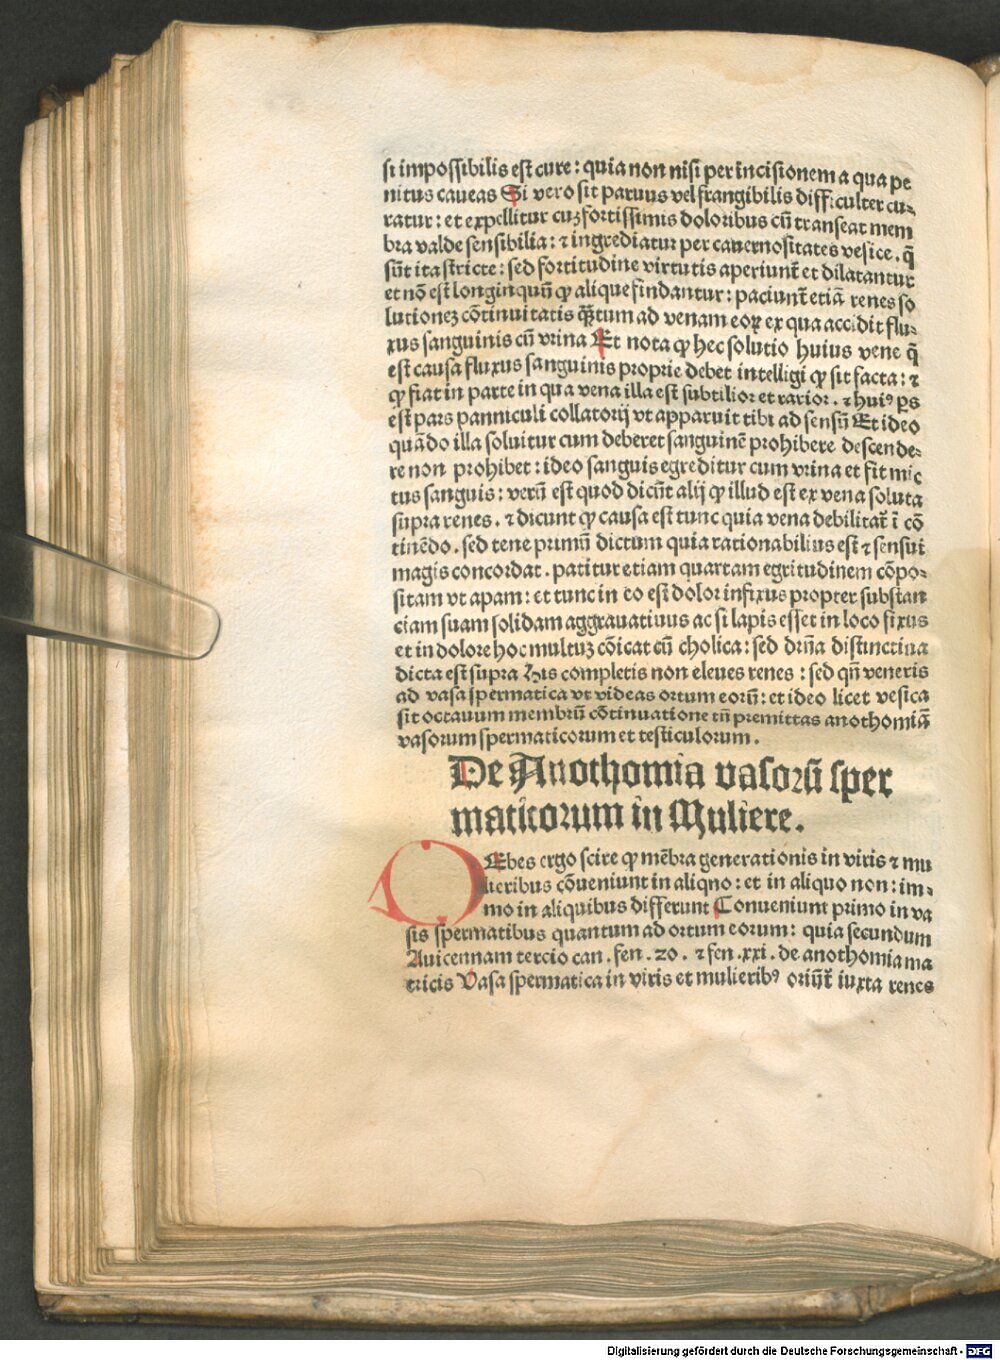 si impossibilis est cure: quia non nisi per incisionem a qua pe
nitus caueas Si vero sit paruus vel frangibilis difficulter cu⸗
ratur: et expellitur cuȝ fortissimis doloribus cũ transeat mem
bra valde sensibilia: ⁊ ingrediatur per cauernositates vesice. q̃
sũt ita stricte: sed fortitudine virtutis aperiunt̃ et dilatantur
et nõ est longinquũ ꝙ alique findantur: paciunt̃ etiã renes so
lutionez cõtinuitatis q̃tum ad venam eoꝝ ex qua accidit flu⸗
xus sanguinis cũ vrina Et nota ꝙ hec solutio huius vene q̃
est causa fluxus sanguinis proprie debet intelligi ꝙ sit facta: ⁊
ꝙ fiat in parte in qua vena illa est subtilior et rarior. ⁊ huiꝰ ps
est pars panniculi collatorij vt apparuit tibi ad sensũ Et ideo
quãdo illa soluitur cum deberet sanguinẽ prohibere descende⸗
re non prohibet: ideo sanguis egreditur cum vrina et fit mic
tus sanguis: verũ est quod dicũt alij ꝙ illud est ex vena soluta
supra renes. ⁊ dicunt ꝙ causa est tunc quia vena debilitat̃ ĩ cõ
tinẽdo. sed tene primũ dictum quia rationabilius est ⁊ sensui
magis concordat. patitur etiam quartam egritudinem cõpo⸗
sitam vt apam: et tunc in eo est dolor infixus propter substan
ciam suam solidam aggrauatiuus ac si lapis esset in loco fixus
et in dolore hoc multuȝ cõicat cũ cholica: sed drñа distinctiua
dicta est supra His completis non eleues renes: sed qñ veneris
ad vasa spermatica vt videas ortum eorũ: et ideo licet vesica
sit octauum membrũ cõtinuatione tñ premittas anothomiã
vasorum spermaticorum et testiculorum.
De Anothomia vasorũ sper
maticorum in Muliere.
DEbes ergo scire ꝙ mẽbra generationis in viris ⁊ mu
lieribus cõueniunt in aliqno: et in aliquo non: im⸗
mo in aliquibus differunt Conueniunt primo in va
sis spermatibus quantum ad ortum eorum: quia secundum
Auicennam tercio can. fen. 20. ⁊ fen. xxi. de anothomia ma
tricis Vasa spermatica in viris et mulieribꝰ oriũt̃ iuxta renes
Digitalisierung gefördert durch die Deutsche Forschungsgemeinschaft - DFG